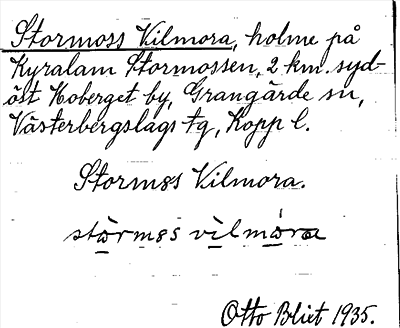 Stormoss Vilmora, holme på
Kyralam Stormossen, 2 km. syd-
öst Hoberget by, Grangärde sn,
Västerbergslags tg, Kopp l.
Stormɞs Vilmora.
stormɞs vilmora
Otto Blixt 1935.